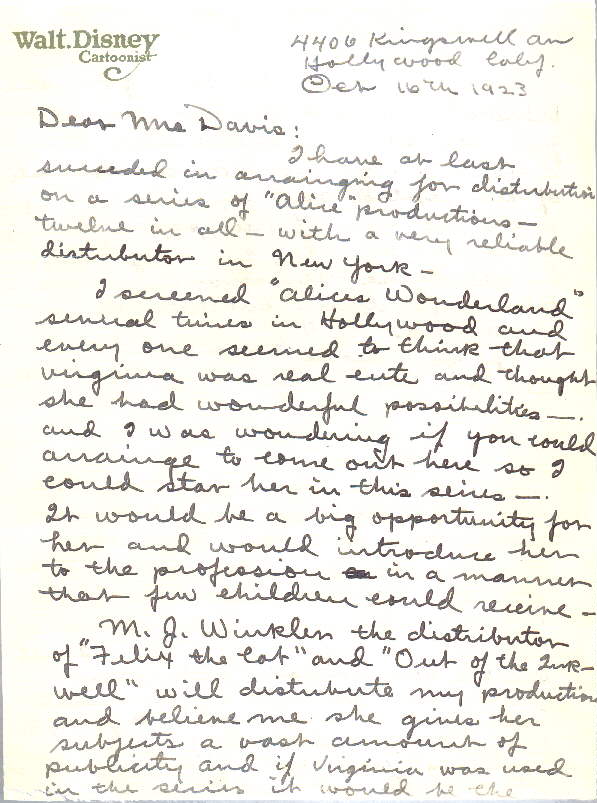 Walt. Disney
Cartoonist
4406 Kingswell av
Hollywood Calif.
Oct 16th 1923
Dear Mrs Davis:
I have at last
succeded in arrainging for distribution
on a series of "Alice" productions —
twelve in all — with a very reliable
distributor in New York —
I screened "Alices Wonderland"
several times in Hollywood and
every one seemed to think that
virginia was real cute and thought
she had wonderful possibilities —.
and I was wondering if you could
arrainge to come out here so I
could star her in this series —.
It would be a big opportunity for
her and would introduce her
to the profession in a manner
that few children could receive —
M. J. Winkler the distributor
of "Felix the Cat" and "Out of the Ink-
well" will distribute my production
and believe me she gives her
subjects a vast amount of
publicity and if Virginia was used
in the series it would be the